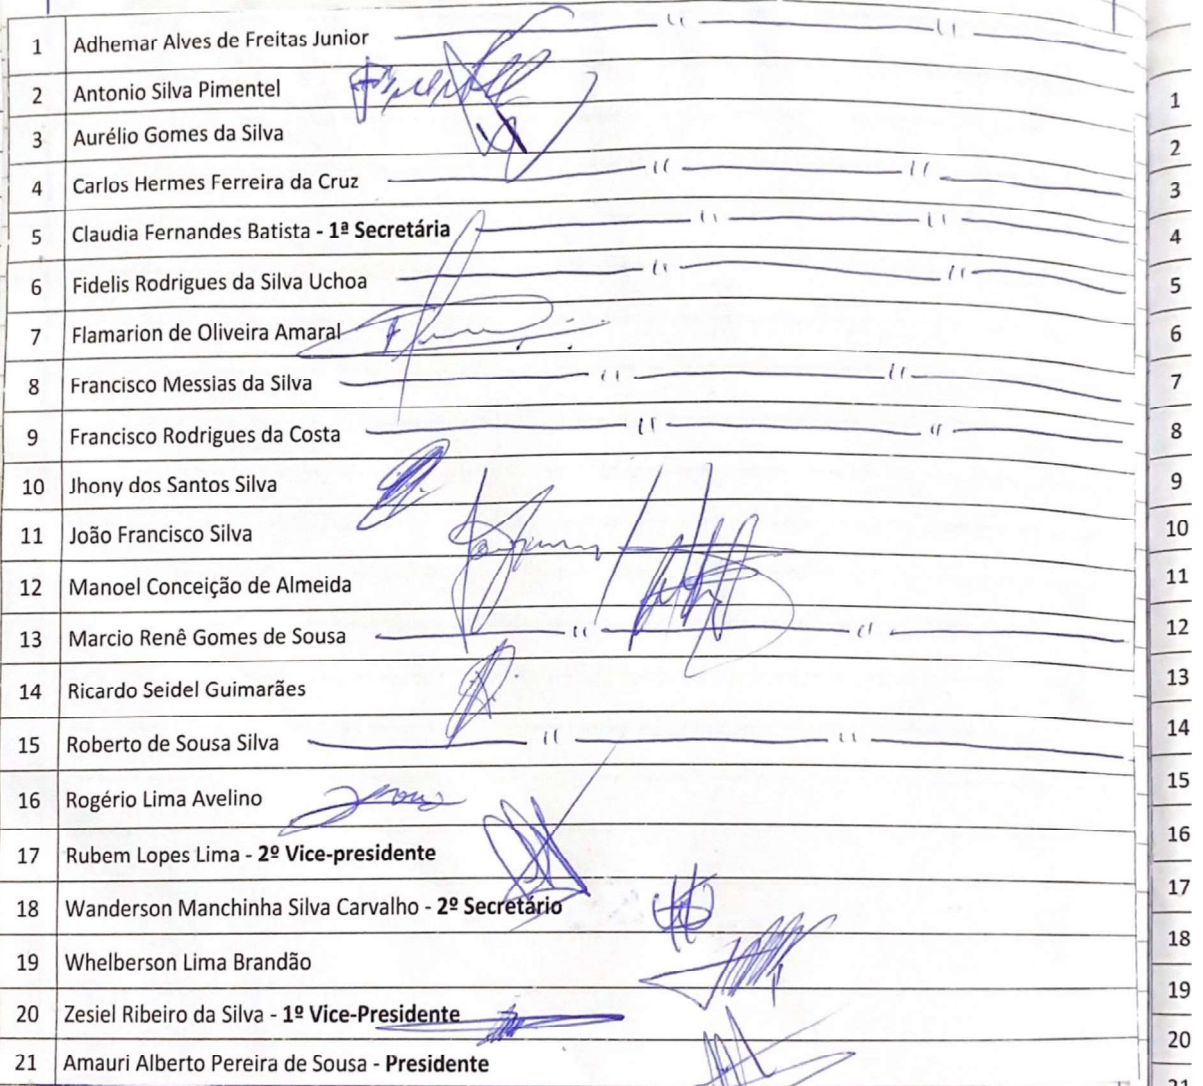 1 Adhemar Alves de Freitas Junior
2 Antonio Silva Pimentel
3 Aurélio Gomes da Silva
4 Carlos Hermes Ferreira da Cruz
5 Claudia Fernandes Batista - 1ª Secretária
6 Fidelis Rodrigues da Silva Uchoa
7 Flamarion de Oliveira Amaral
8 Francisco Messias da Silva
9 Francisco Rodrigues da Costa
10 Jhony dos Santos Silva
11 João Francisco Silva
12 Manoel Conceição de Almeida
13 Marcio Renê Gomes de Sousa
14 Ricardo Seidel Guimarães
15 Roberto de Sousa Silva
16 Rogério Lima Avelino
17 Rubem Lopes Lima - 2º Vice-presidente
18 Wanderson Manchinha Silva Carvalho - 2º Secretário
19 Whelberson Lima Brandão
20 Zesiel Ribeiro da Silva - 1º Vice-Presidente
21 Amauri Alberto Pereira de Sousa - Presidente
1
2
3
4
5
6
7
8
9
10
11
12
13
14
15
16
17
18
19
20